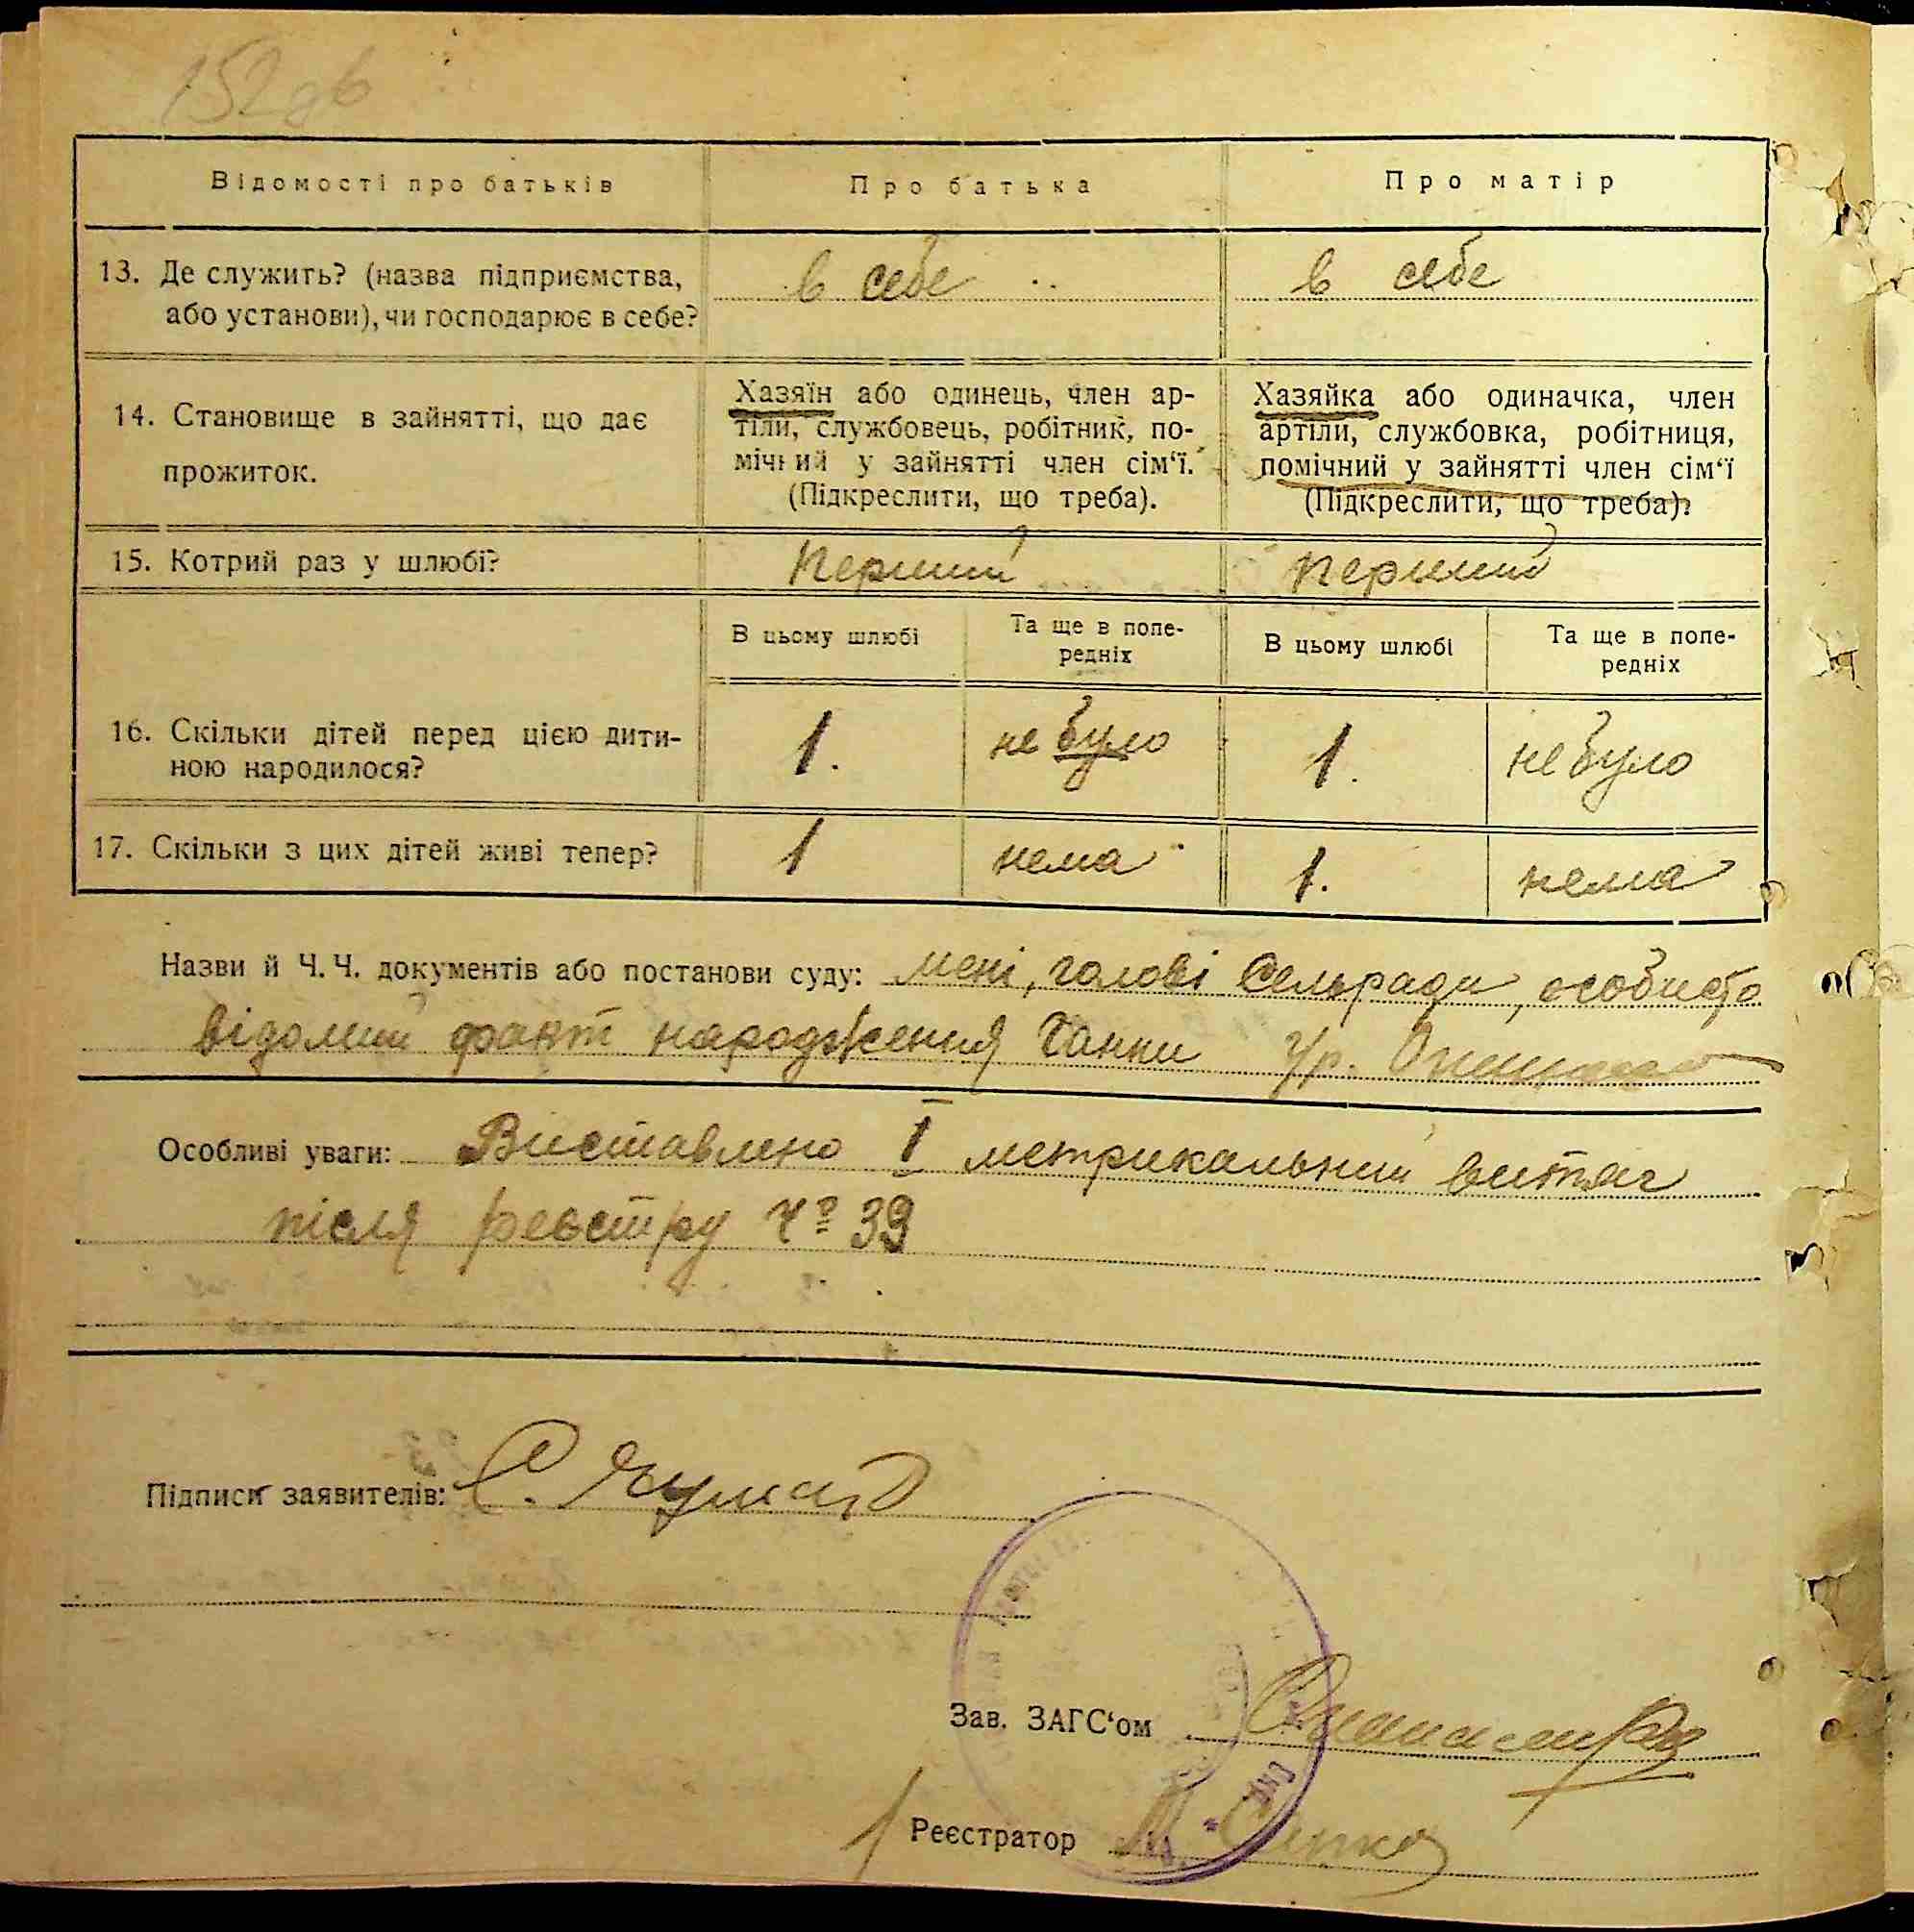 152 зв
Відомості про батьків Про батька Про матір
13. Де служить? (назва підприємства, в себе в себе
або установи), чи господарює в себе?
Хазяїн або одинець, член ар- Хазяйка або одиначка, член
14. Становище в зайнятті, що дає тіли, службовець, робітник, по- артіли, службовка, робітниця,
прожиток. мічний у зайнятті член сім‘ї. помічний у зайнятті член сім‘ї
(Підкреслити, що треба). (Підкреслити, що треба).
15. Котрий раз у шлюбі? перший перший
В цьому шлюбі Та ще в попе- В цьому шлюбі Та ще в попе-
редніх редніх
16. Скільки дітей перед цією дити- 1. не було 1. не було
ною народилося?
17. Скільки з цих дітей живі тепер? 1 нема 1. нема
Назви й Ч. Ч. документів або постанови суду: мені, голові Сельради, особисто
відомий факт народження Ганни гр.
Особливі уваги: Виставлено I метрикальний витяг
після реєстру Чо 39
Підписи заявителів: С.
Зав. ЗАГС‘ом
Реєстратор